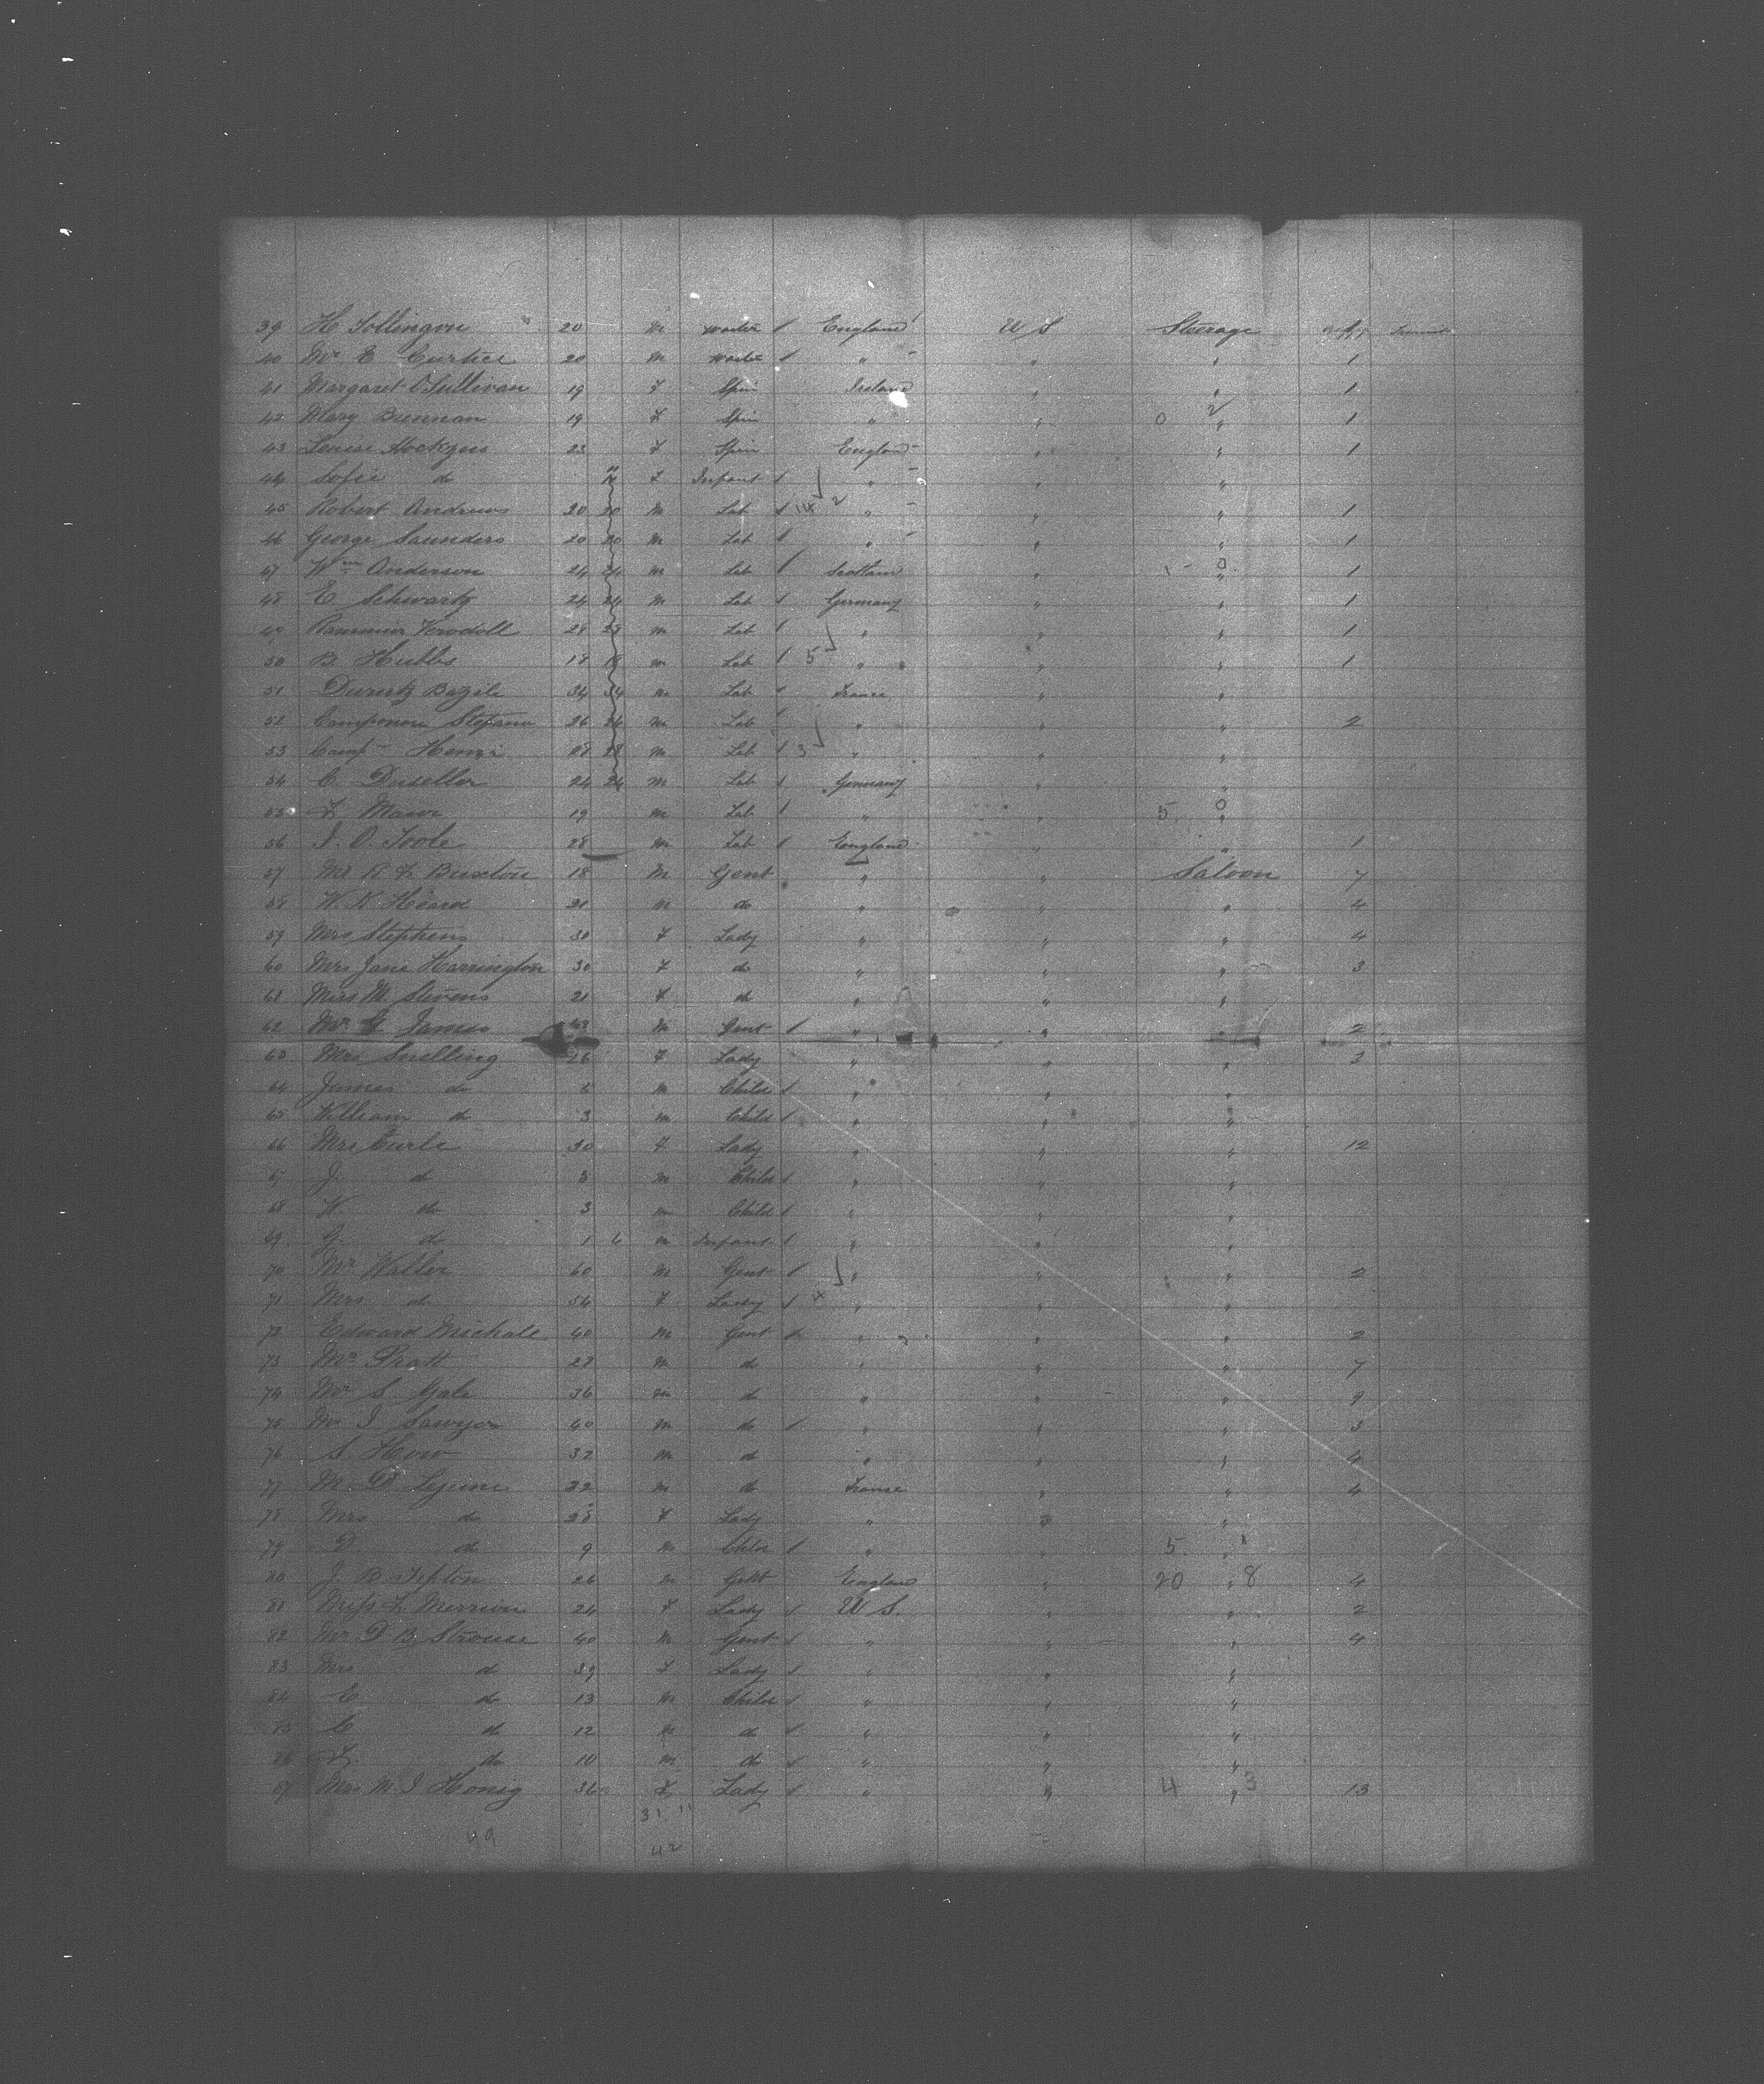 39 H Tollingon 20 m waiter England U S Steerage 1
40 Mr E Curtice 20 m waiter " " " 1
41 Margaret O'Sullivan 19 F Spin Ireland " " 1
42 Mary Brennan 19 F Spin " " 0 2 " 1
43 Louise Hockyns 23 F Spin England " " 1
44 Sofie do F Infant " " "
45 Robert Andrews 20 20 m Lab 14 2 " " " 1
46 George Saunders 20 20 m Lab " " " 1
47 Wm Anderson 24 24 m Lab Scotland " 1 - 0 " 1
48 E. Schwartz 24 24 m Lab Germany " " 1
49 28 28 m Lab " " " 1
50 B. Hubbs 18 18 m Lab 5 " " " 1
51 Bazile 34 34 m Lab France " "
52 Stepano 26 26 m Lab " " " 2
53 Camp Henri 28 28 m Lab 3 " " "
54 C. 24 24 m Lab Germany " "
55 F. 19 m Lab " " 5 0 "
56 J. O. Toole 28 m Lab England " " 1
57 Mr R F. Buxton 18 m Gent " " Saloon 7
58 W. K Heard 21 m do " " " 4
59 Mrs Stephens 30 F Lady " " " 4
60 Mrs Jane Harrington 30 F do " " " 3
61 Miss M. Stevens 21 F do " " "
62 Mr James 43 m Gent " " " 2
63 Mrs Snelling 26 F Lady " " " 3
64 James do 5 m Child " " "
65 William do 3 m Child " " "
66 Mrs Curle 30 F Lady " " " 12
67 J. do 5 m Child " " "
68 W. do 3 m Child " " "
69 G. do 1 6 m Infant " " "
70 Mr Waller 60 m Gent " " " 2
71 Mrs do 54 F Lady " " "
72 Edward Michale 40 m Gent " " " 2
73 Mr Pratt 27 m do " " " 7
74 Mr S. Gale 36 m do " " " 9
75 Mr J Sawyer 40 m do " " " 3
76 S. How 32 m do " " " 4
77 M. D Lejune 32 m do France " " 4
78 Mrs do 28 F Lady " " "
79 do 9 m Child " " 5 " 1
80 J. B Tipton 26 m Gent England " 20 " 8 4
81 Miss F. Merrion 24 F Lady U S. " " 2
82 Mr D B. Strouse 40 m Gent " " " 4
83 Mrs do 39 F Lady " " "
84 E do 13 m Child " " "
85 C do 12 m do " " "
86 F. do 10 m do " " "
87 Mrs M. J Honig 36 F Lady " " 4 " 3 13
31 11
49
42